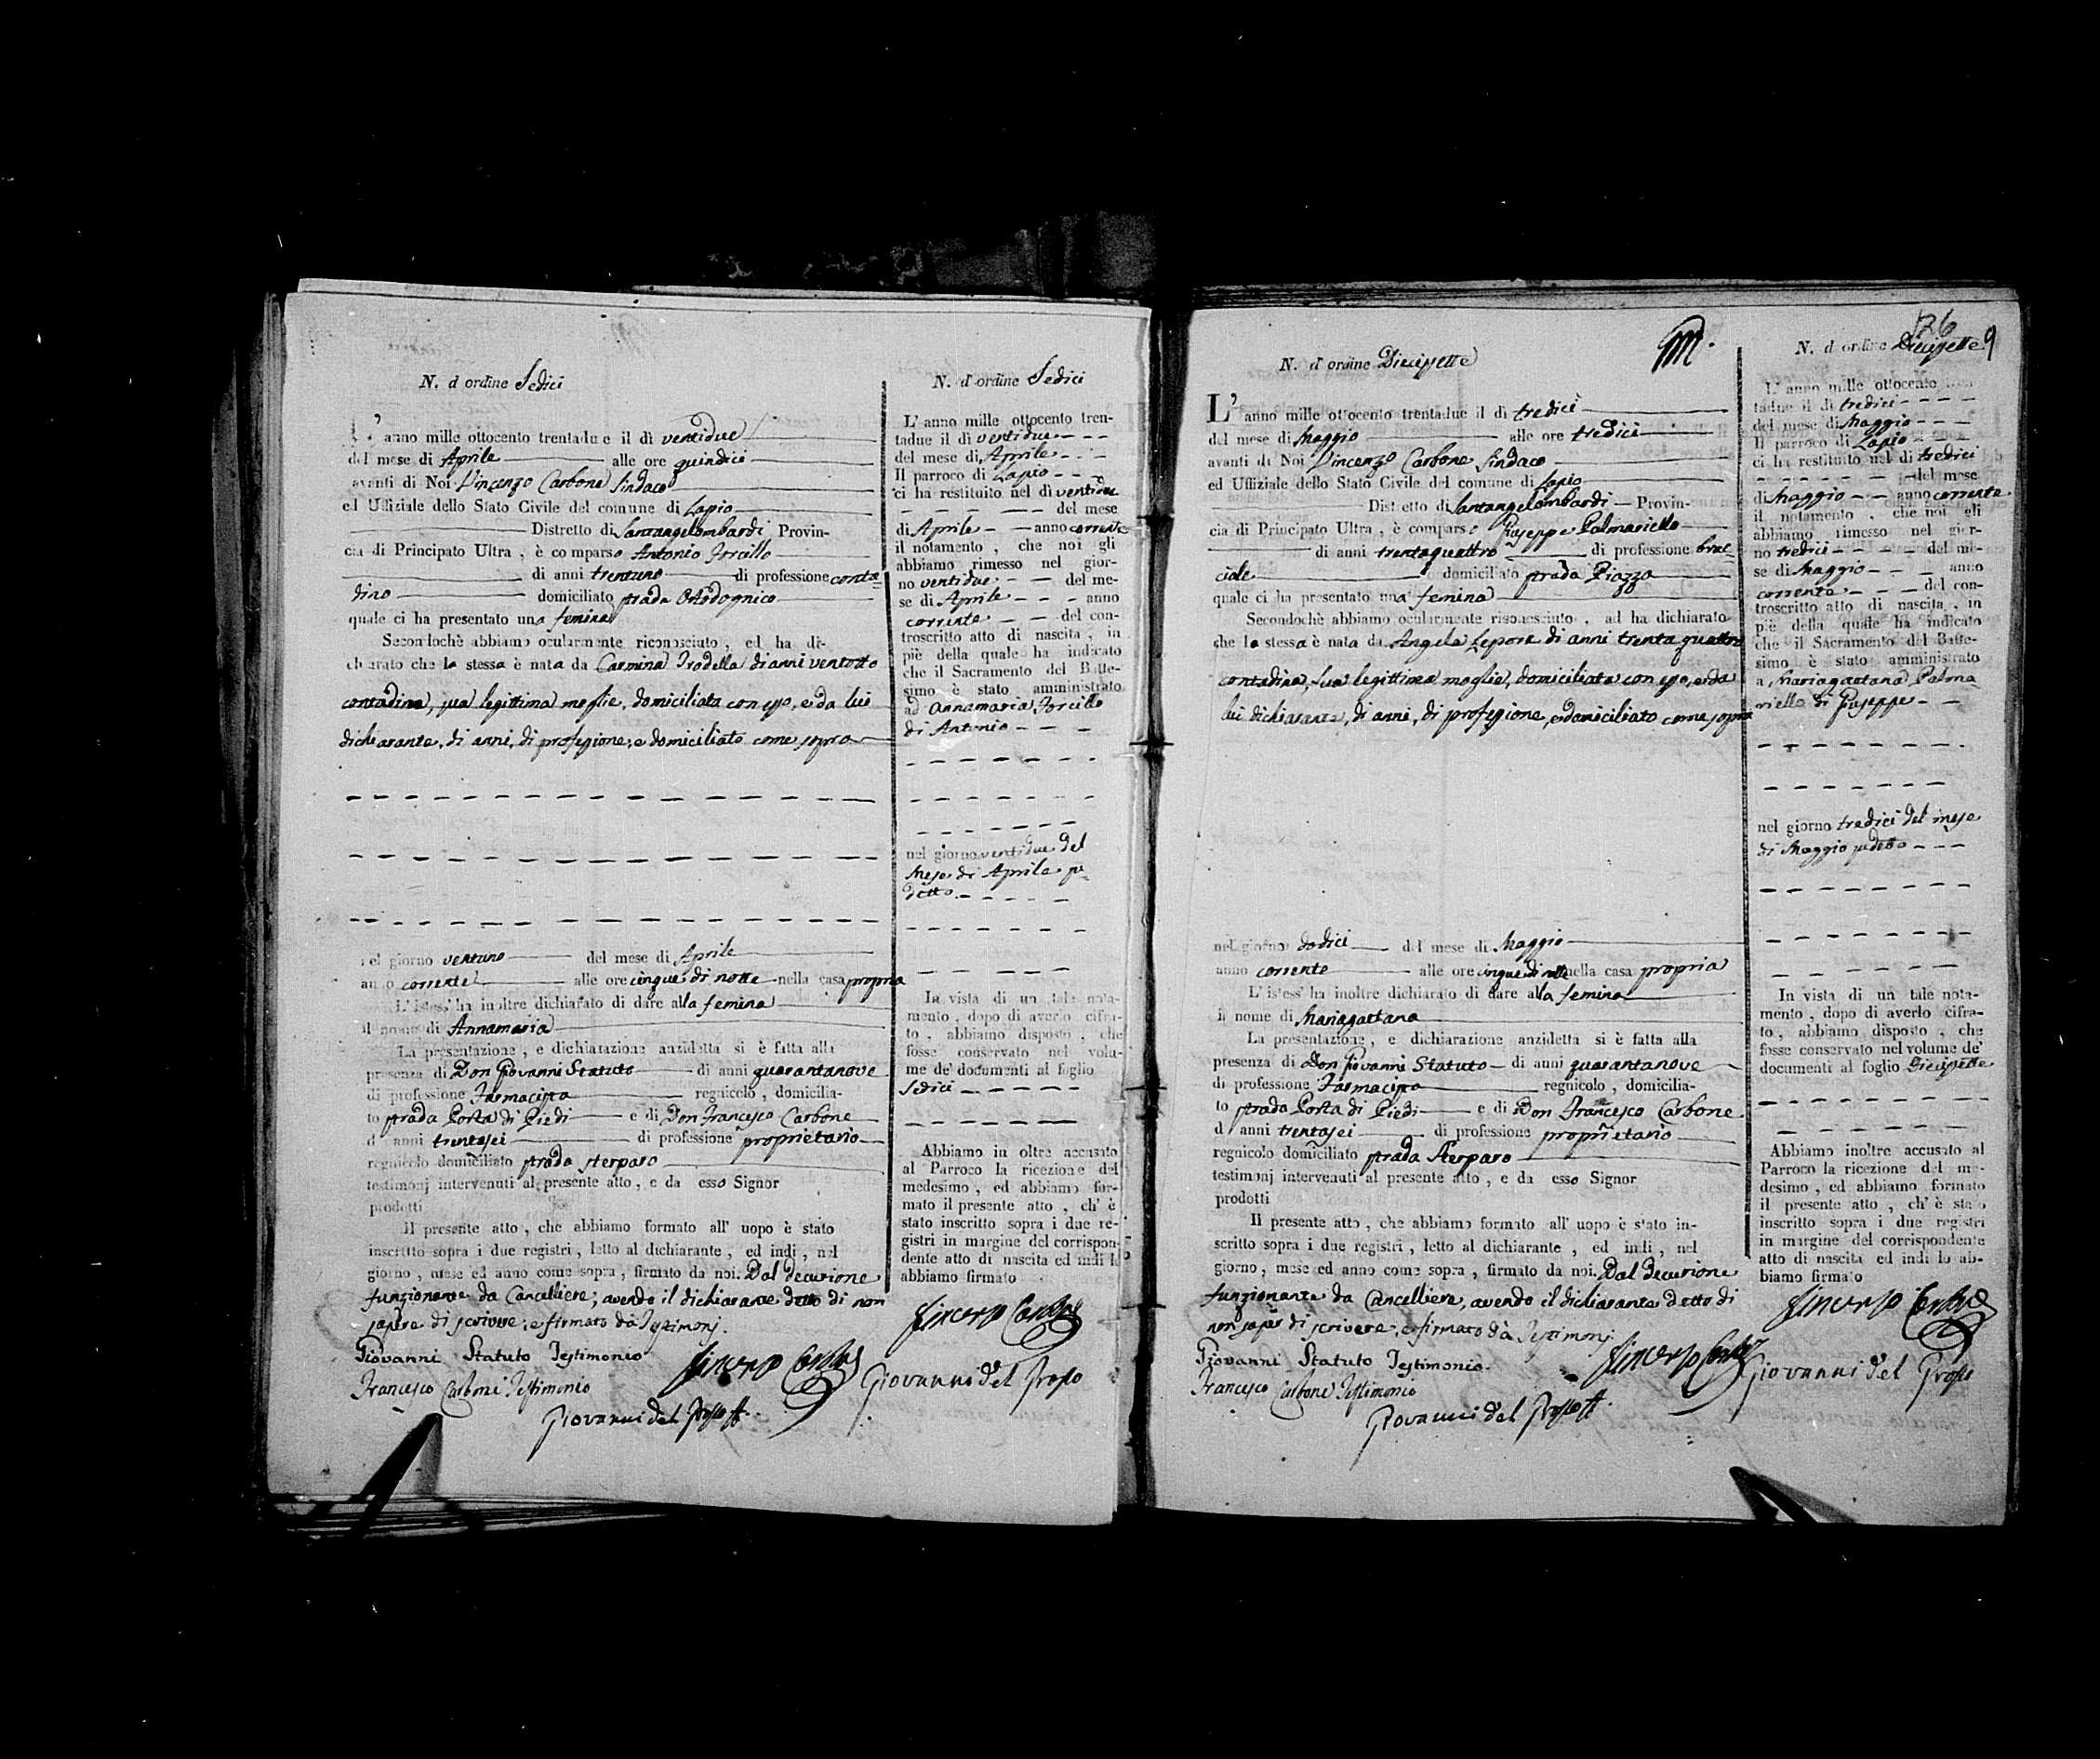 N. d'ordine Sedici
L'anno mille ottocento trentadue il dì ventidue
del mese di Aprile alle ore quindici
avanti di Noi Vincenzo Carbone Sindaco
ed Uffiziale dello Stato Civile del comune di Lapio
Distretto di Santangelombardi Provin-
cia di Principato Ultra, è comparso Antonio Forcillo
di anni trentuno di professione conta
dino domiciliato strada
quale ci ha presentato una femina
Secondochè abbiamo ocularmente riconosciuto, ed ha di-
chiarato che la stessa è nata da Carmina Irodella di anni ventotto
contadina, sua legittima moglie, domiciliata con esso, e da lui
dichiarante, di anni, di professione, e domiciliato come sopra
nel giorno ventuno del mese di Aprile
anno corrente alle ore cinque di notte nella casa propria
L'istess' ha inoltre dichiarato di dare alla femina
il nome di Annamaria
La presentazione, e dichiarazione anzidetta si è fatta alla
presenza di Don Giovanni Statuto di anni quarantanove
di professione Farmacista regnicolo, domicilia-
to strada Porta di Piedi e di Don Francesco Carbone
di anni trentasei di professione proprietario
regnicolo domiciliato strada Sterparo
testimonj intervenuti al presente atto, e da esso Signor
prodotti
Il presente atto, che abbiamo formato all' uopo è stato
inscritto sopra i due registri, letto al dichiarante, ed indi, nel
giorno, mese ed anno come sopra, firmato da noi. Dal decurione
funzionante da Cancelliere; avendo il dichiarante detto di non
sapere di scrivere; e firmato da Testimonj.
Giovanni Statuto Testimonio
Vincenzo Carbone
Francesco Carbone Testimonio
Giovanni del Grosso
N. d'ordine Sedici
L'anno mille ottocento tren-
tadue il dì ventidue
del mese di Aprile
Il parroco di Lapio
ci ha restituito nel dì ventidue
del mese
di Aprile anno corrente
il notamento, che noi gli
abbiamo rimesso nel gior-
no ventidue del me-
se di Aprile anno
corrente del con-
troscritto atto di nascita, in
piè della quale ha indicato
che il Sacramento del Batte-
simo è stato amministrato
ad Annamaria Forcillo
di Antonio
nel giorno ventidue del
mese di Aprile su
detto
In vista di un tale nota-
mento, dopo di averlo cifra-
to, abbiamo disposto, che
fosse conservato nel volu-
me de' documenti al foglio
Sedici
Abbiamo in oltre accusato
al Parroco la ricezione del
medesimo, ed abbiamo for-
mato il presente atto, ch' è
stato inscritto sopra i due re-
gistri in margine del corrispon-
dente atto di nascita ed indi lo
abbiamo firmato
Vincenzo Carbone
Giovanni del Grosso
N. d'ordine Diecissette
L'anno mille ottocento trentadue il dì tredici
del mese di Maggio alle ore tredici
avanti di Noi Vincenzo Carbone Sindaco
ed Uffiziale dello Stato Civile del comune di Lapio
Distretto di Santangelombardi Provin-
cia di Principato Ultra, è comparso Giuseppe Palmariello
di anni trentaquattro di professione brac-
ciale domiciliato strada Piazza
quale ci ha presentato una femina
Secondochè abbiamo ocularmente riconosciuto, ad ha dichiarato
che la stessa è nata da Angela Lepore di anni trenta quattro
contadina, sua legittima moglie, domiciliata con esso, e da
lui dichiarante, di anni, di professione, e domiciliato come sopra
nel giorno dodici del mese di Maggio
anno corrente alle ore cinque di notte nella casa propria
L'istess' ha inoltre dichiarato di dare alla femina
il nome di Mariagaetana
La presentazione, e dichiarazione anzidetta si è fatta alla
presenza di Don Giovanni Statuto di anni quarantanove
di professione Farmacista regnicolo, domicilia-
to strada Porta di Piedi e di Don Francesco Carbone
di anni trentasei di professione proprietario
regnicolo domiciliato strada Sterparo
testimonj intervenuti al presente atto, e da esso Signor
prodotti
Il presente atto, che abbiamo formato all' uopo è stato in-
scritto sopra i due registri, letto al dichiarante, ed indi, nel
giorno, mese ed anno come sopra, firmato da noi. Dal decurione
funzionante da Cancelliere, avendo il dichiarante detto di
non saper di scrivere; e firmato da Testimonj.
Giovanni Statuto Testimonio
Vincenzo Carbone
Francesco Carbone Testimonio
Giovanni del Grosso
126
9
N. d'ordine Diecissette
L'anno mille ottocento tren-
tadue il dì tredici
del mese di Maggio
Il parroco di Lapio
ci ha restituito nel dì tredici
del mese
di Maggio anno corrente
il notamento, che noi gli
abbiamo rimesso nel gior-
no tredici del me-
se di Maggio anno
corrente del con-
troscritto atto di nascita, in
piè della quale ha indicato
che il Sacramento del Batte-
simo è stato amministrato
a Mariagaetana Palma
riello di Giuseppe
nel giorno tredici del mese
di Maggio sudetto
In vista di un tale nota-
mento, dopo di averlo cifra-
to, abbiamo disposto, che
fosse conservato nel volume de'
documenti al foglio Diecissette
Abbiamo inoltre accusato al
Parroco la ricezione del me-
desimo, ed abbiamo formato
il presente atto, ch' è stato
inscritto sopra i due registri
in margine del corrispondente
atto di nascita ed indi lo ab-
biamo firmato
Vincenzo Carbone
Giovanni del Grosso